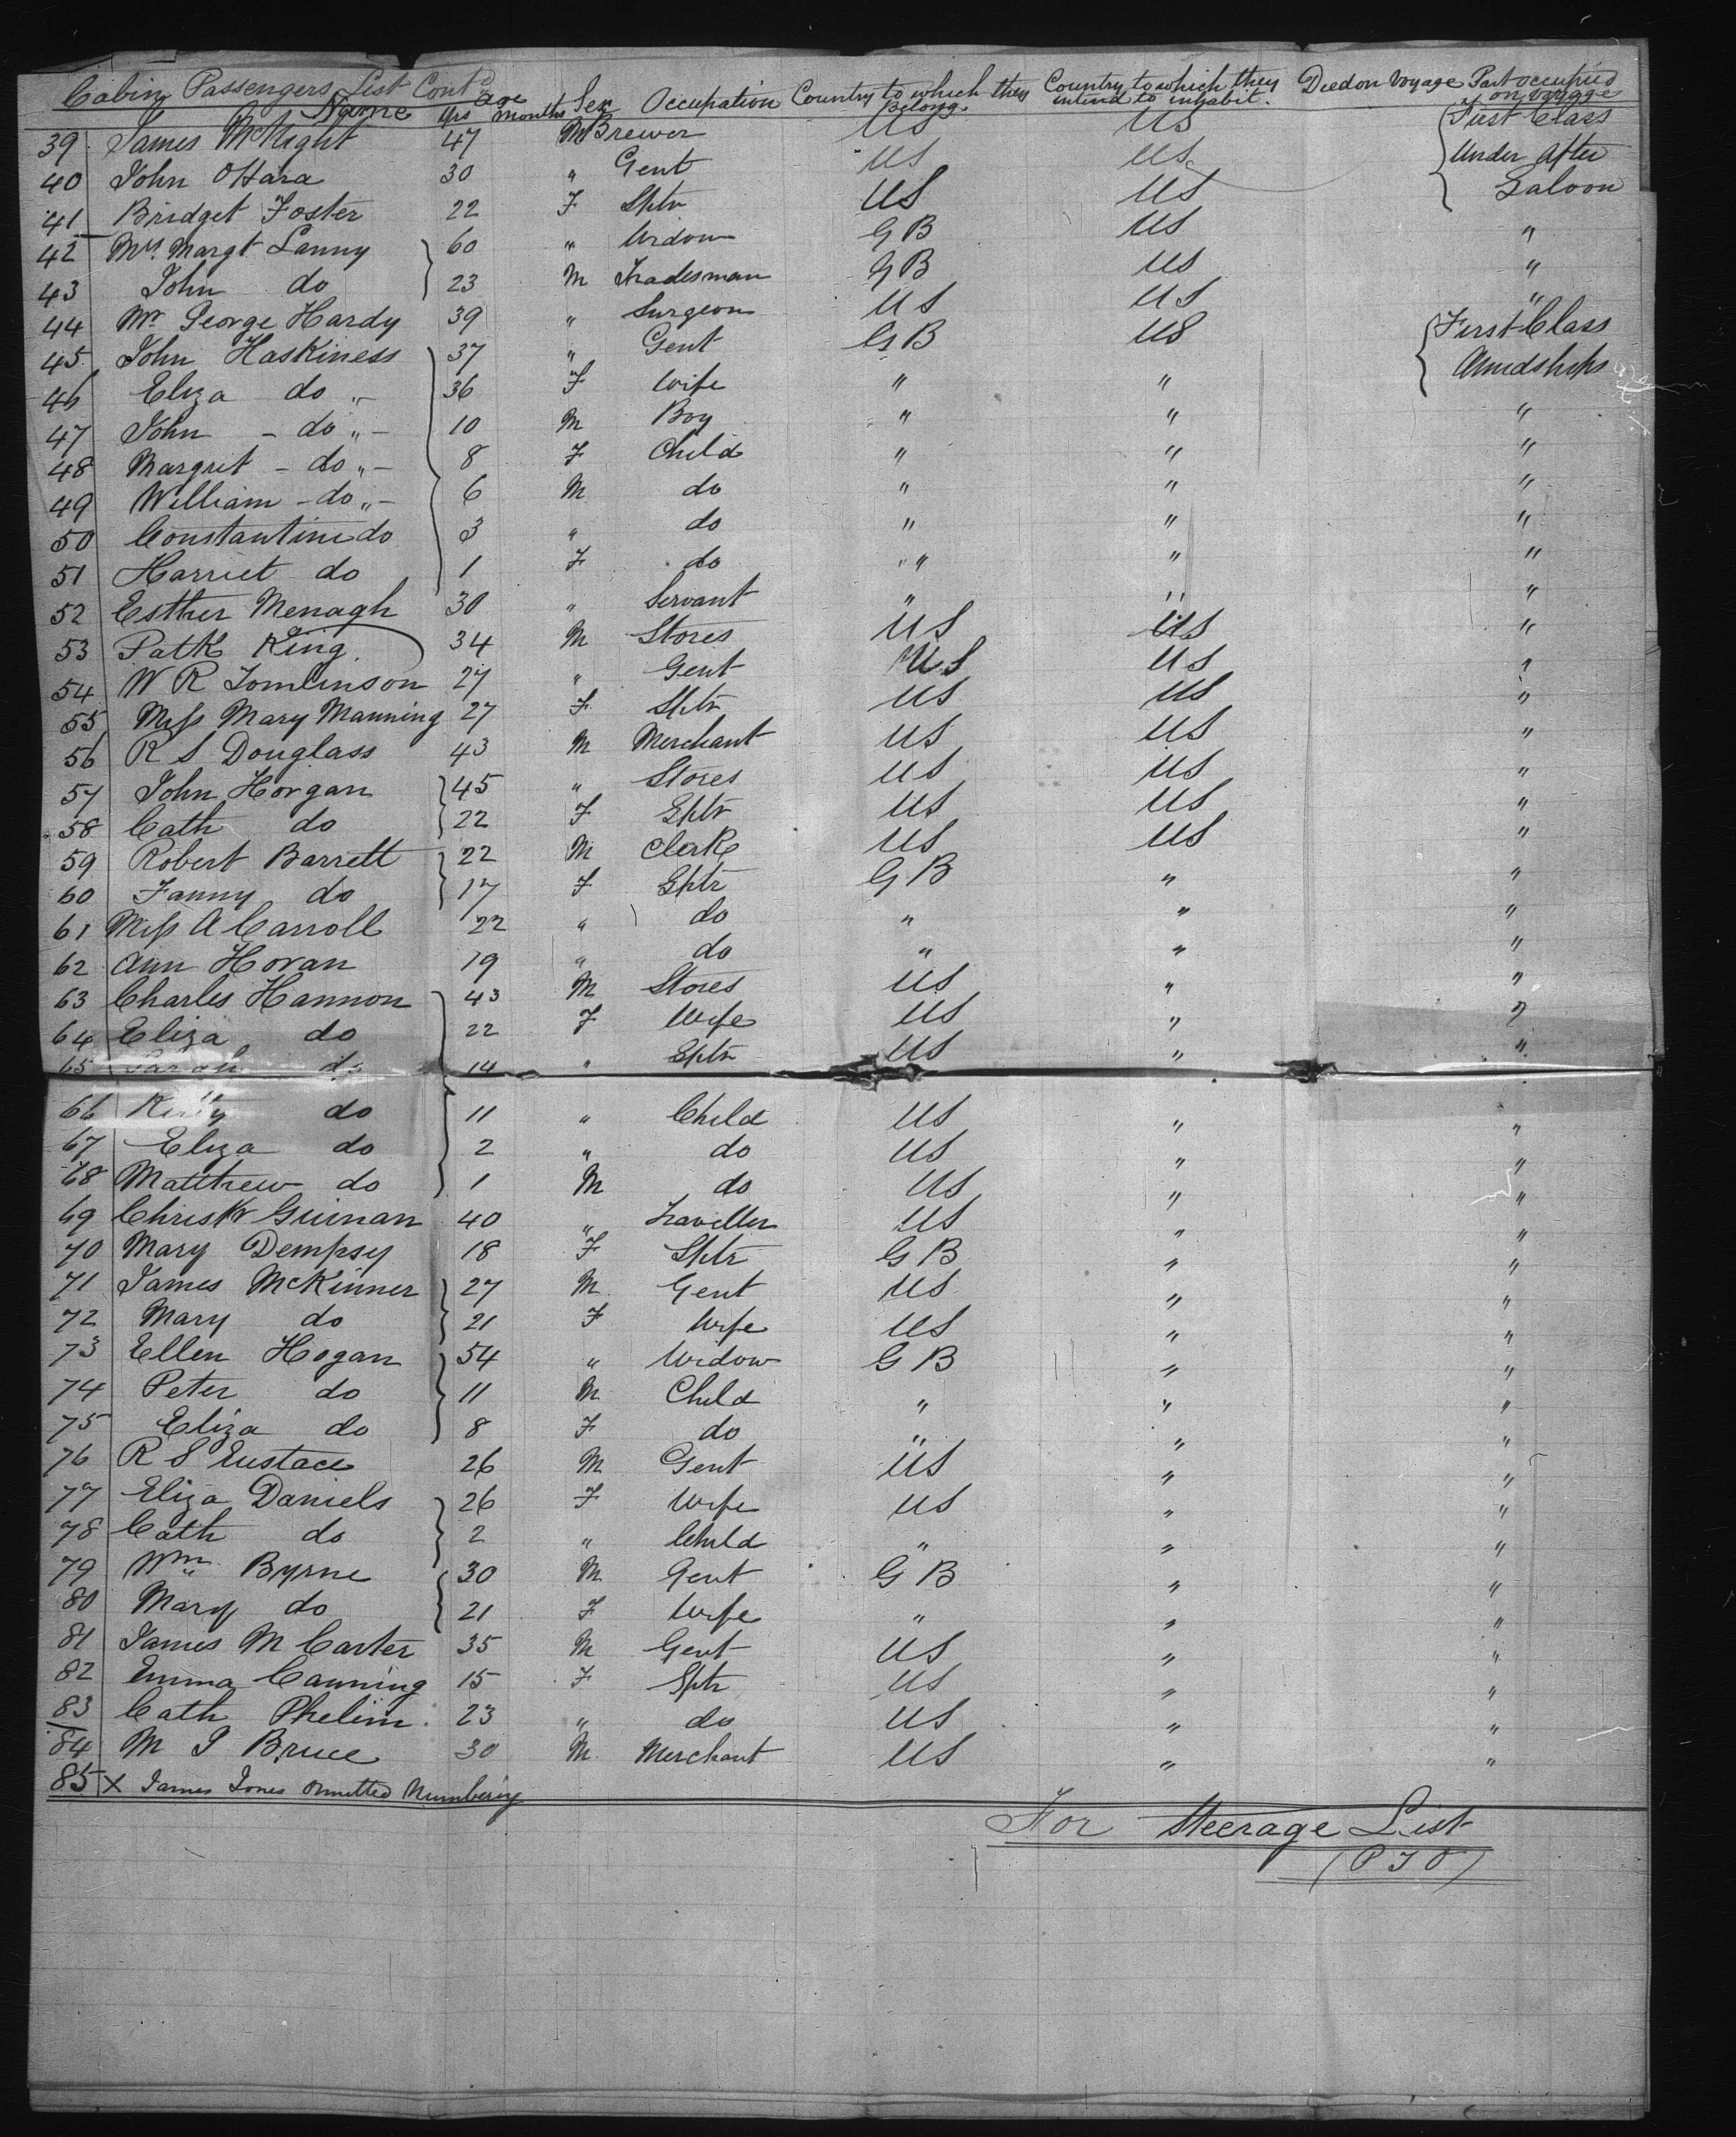 Cabin Passengers List Cont'd
Name Age Yrs months Sex Occupation Country to which they belong. Country to which they intend to inhabit. Died on Voyage Part occupied on voyage
39 James McNight 47 M Brewer US US First Class
40 John O'Hara 30 " Gent US US Under After
41 Bridget Foster 22 F Sptr US US Saloon
42 Mrs. Margt Lanny 60 " Widow GB US "
43 John do 23 M Tradesman GB US "
44 Mr George Hardy 39 " Surgeon US US "
45 John Haskiness 37 " Gent GB US First Class
46 Eliza do " 36 F Wife " " Amidships
47 John - do " - 10 M Boy " " "
48 Margrit - do " - 8 F Child " " "
49 William - do " - 6 M do " " "
50 Constantine do 3 " do " " "
51 Harriet do 1 F do " " "
52 Esther Menagh 30 " Servant " " "
53 Patk King. 34 M Stores US US "
54 W R Tomlinson 27 " Gent US US "
55 Miss Mary Manning 27 F Sptr US US "
56 R S Douglass 43 M Merchant US US "
57 John Horgan 45 " Stores US US "
58 Cath do 22 F Sptr US US "
59 Robert Barrett 22 M Clerk US US "
60 Fanny do 17 F Sptr GB " "
61 Miss A Carroll 22 " do " " "
62 Ann Horan 19 " do " " "
63 Charles Hannon 43 M Stores US " "
64 Eliza do 22 F Wife US " "
65 Sarah do 14 " Sptr US " "
66 Kitty do 11 " Child US " "
67 Eliza do 2 " do US " "
68 Matthew do 1 M do US " "
69 Christr Guinan 40 " Traveller US " "
70 Mary Dempsy 18 F Sptr GB " "
71 James McKinner 27 M Gent US " "
72 Mary do 21 F Wife US " "
73 Ellen Hogan 54 " Widow GB " "
74 Peter do 11 M Child " " "
75 Eliza do 8 F do " " "
76 R S Eustace 26 M Gent US " "
77 Eliza Daniels 26 F Wife US " "
78 Cath do 2 " Child " " "
79 Wm Byrne 30 M Gent GB " "
80 Mary do 21 F Wife " " "
81 James M Carter 35 M Gent US " "
82 Emma Canning 15 F Sptr US " "
83 Cath Phelim. 23 " do US " "
84 M J Bruce 30 M. Merchant US " "
85 X James Jones Omitted Numbering
For Steerage List
(P T O)